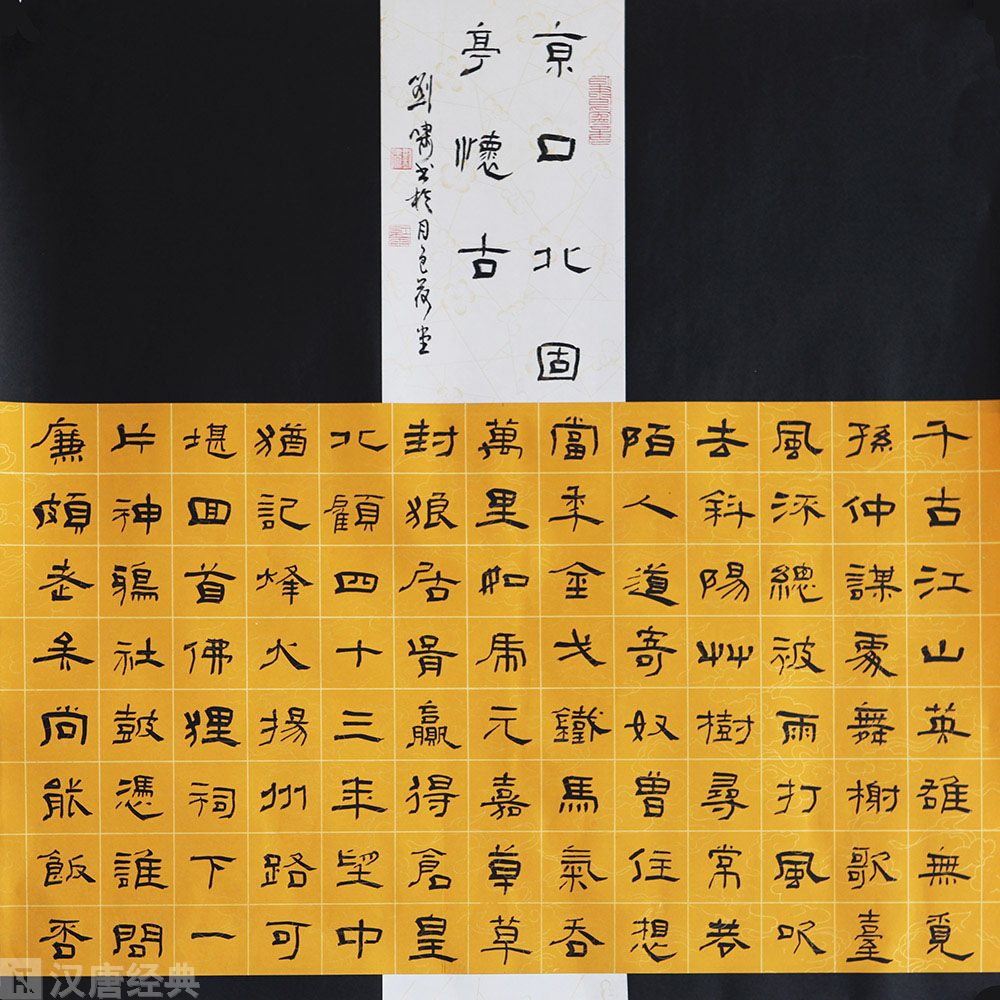 京口北固
亭懷古
劉嘯书於月色荷堂
千古江山英雄無覓
孫仲謀處舞榭歌臺
風流總被雨打風吹
去斜陽艸樹尋常巷
陌人道寄奴曾住想
當年金戈鐵馬氣吞
萬里如虎元嘉草草
封狼居胥贏得倉皇
北顧四十三年望中
猶記烽火揚州路可
堪回首佛狸祠下一
片神鴉社鼓憑誰問
廉頗老矣尚能飯否
汉唐经典